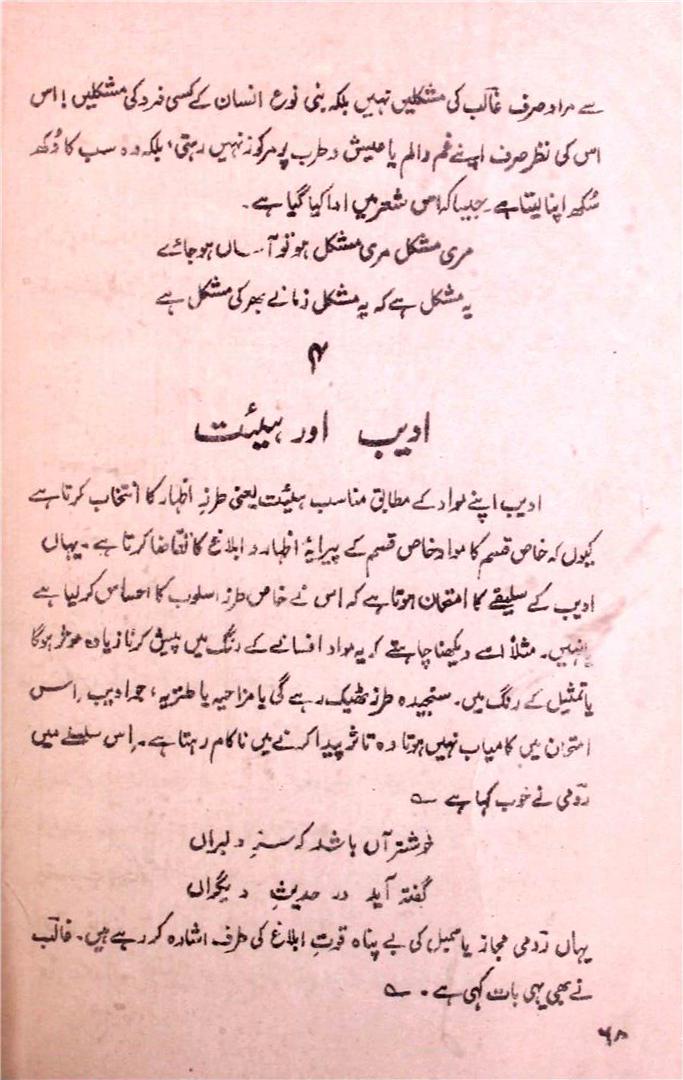 سے مراد صرف غالب کی مشکلیں نہیں بلکہ بنی نوع انسان کے کسی فرد کی مشکلیں! اس
اس کی نظر صرف اپنے غم والم یا عیش و طرب پر مرکوز نہیں رہتی، بلکہ وہ سب کا دُکھ
سُکھ اپنا لیتا ہے۔ جیسا کہ اس شعر میں ادا کیا گیا ہے۔
مری مشکل مری مشکل ہو تو آساں ہو جائے
یہ مشکل ہے کہ یہ مشکل زمانے بھر کی مشکل ہے
۴
ادیب اور ہیئت
ادیب اپنے مواد کے مطابق مناسب ہیئت یعنی طرزِ اظہار کا انتخاب کرتا ہے
کیوں کہ خاص قسم کا مواد خاص قسم کے پیرایۂ اظہار و ابلاغ کا تقاضا کرتا ہے۔ یہاں
ادیب کے سلیقے کا امتحان ہوتا ہے کہ اس نے خاص طرزِ اسلوب کا احساس کر لیا ہے
یا نہیں۔ مثلاً اسے دیکھنا چاہئے کہ یہ مواد افسانے کے رنگ میں پیش کرنا زیادہ موثر ہوگا
یا تمثیل کے رنگ میں۔ سنجیدہ طرز ٹھیک رہے گی یا مزاحیہ یا طنزیہ، جو ادیب اِس
امتحان میں کامیاب نہیں ہوتا وہ تاثر پیدا کرنے میں ناکام رہتا ہے۔ اِس سلسلے میں
رومی نے خوب کہا ہے ؎
خوشتر آں باشد کہ سرِ دلبراں
گفتہ آید در حدیثِ دیگراں
یہاں رومی مجاز یا سمبل کی بے پناہ قوتِ ابلاغ کی طرف اشارہ کر رہے ہیں۔ غالب
نے بھی یہی بات کہی ہے۔ ؎